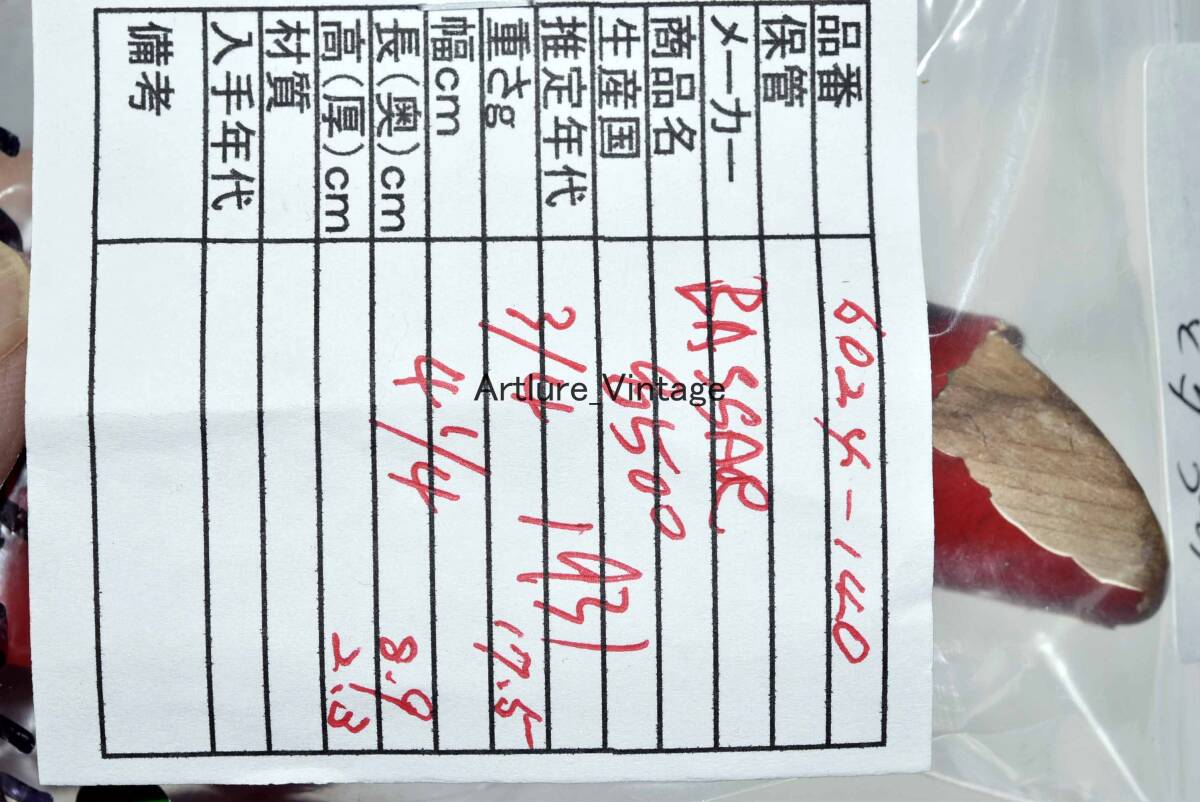 品番 6024-140
保管
メーカー BASSAR
商品名 8500
生産国
推定年代 1931
重さg 3/4 17.5
幅cm
長(奥)cm 4 1/4 8.9
高(厚)cm 2.3
材質
入手年代
備考
Artlure_Vintage